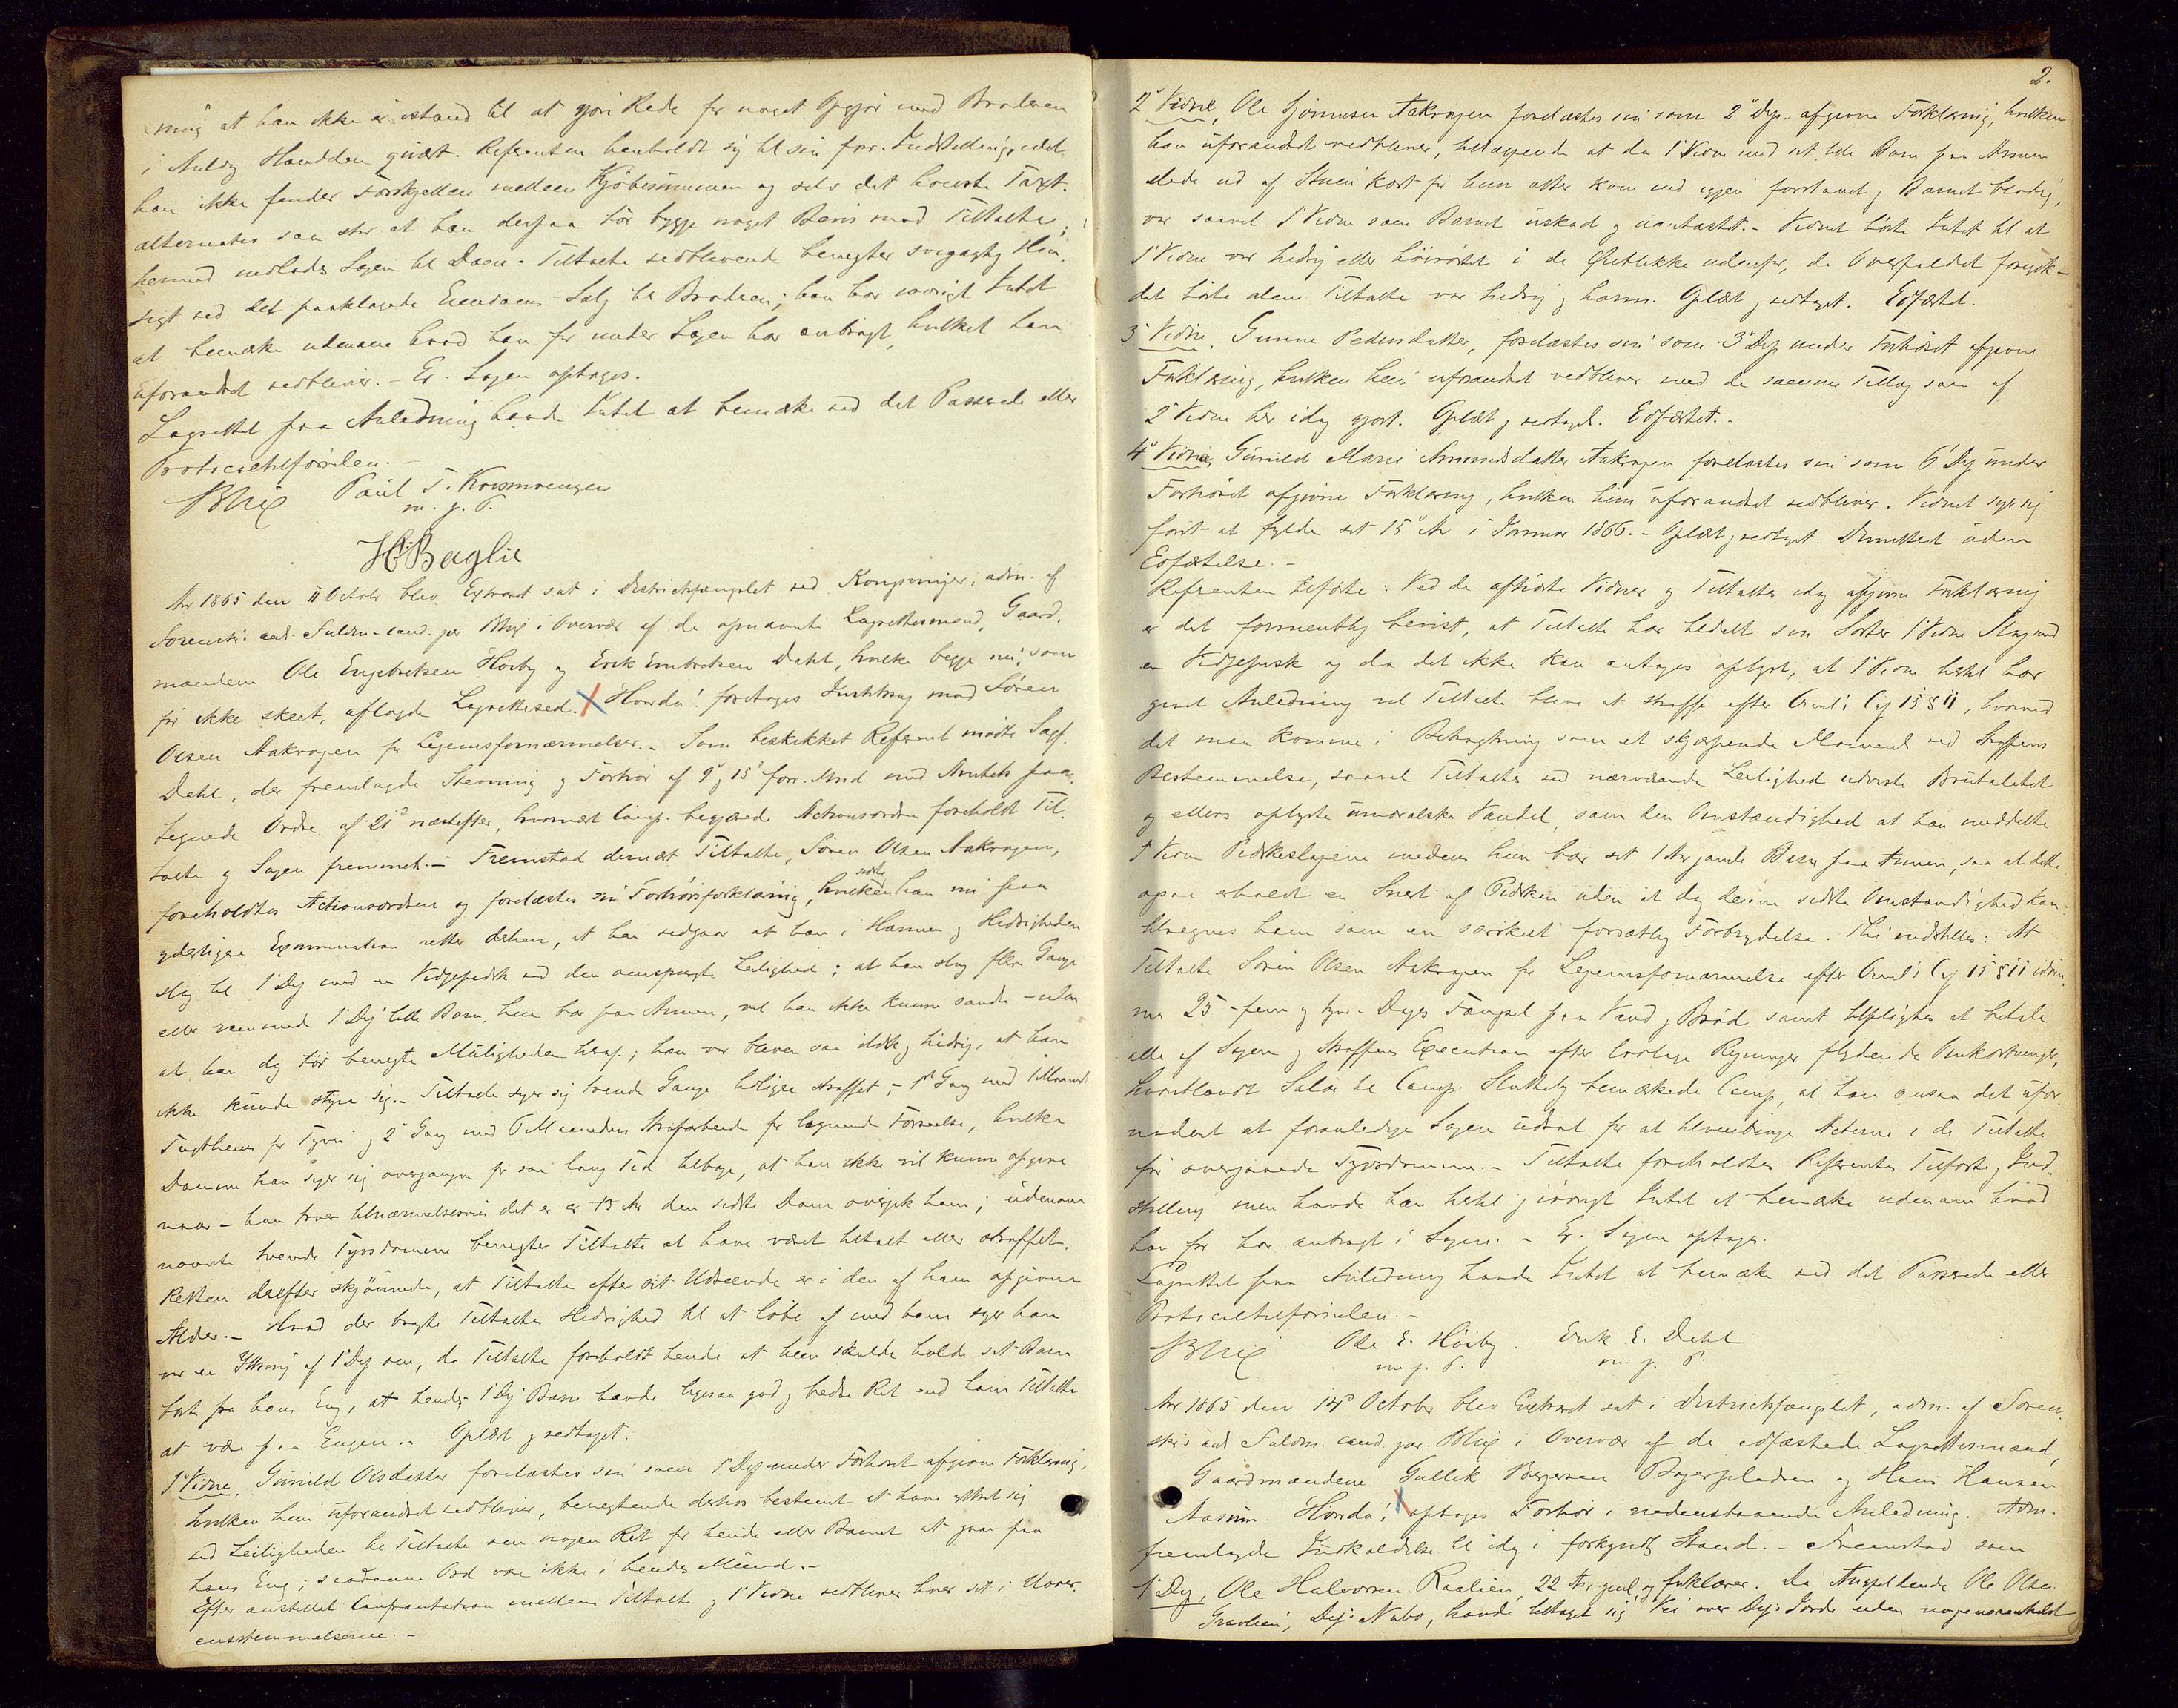 ning at han ikke er istand til at gjøre Rede for noget Opgjør med Broderen
i Anledg Handelen giver. Referenten henholdt sig til sin før. Indstilling, idet
han ikke finder Forskjellen mellem Kjøbesummen og selv det høieste Taxt-
alternativ saa stor at han derpaa tør bygge noget Bevis mod Tiltalte;
hermed indlodes Sagen til Dom. - Tiltalte vedblivende benegter svigagtig Hen-
sigt ved det paaklagede Eiendoms-Salg til Broderen; han har iøvrigt Intet
at bemærke udenom hvad han før under Sagen har anbragt, hvilket han
uforandret vedbliver. - Er. Sagen optages.
Lagrettet paa Anledning havde Intet at bemærke ved det Passerede eller
Protocoltilførselen. -
Blix Paul T. Korsmoengen
m. p. P.
H. Baglie
Aar 1865 den 11 October blev Extraret sat i Districtsfængslet ved Kongsvinger, adm. af
Sorenskr. aut. Fuldm. cand. jur. Blix i Overvær af de opnævnte Lagrettesmænd, Gaard-
mændene Ole Engebretsen Høiby og Erik Embretsen Dahl, hvilke begge nu, som
før ikke skeet, aflagde Lagretteseed. X Hvorda! foretages Justitssag mod Søren
Olsen Aakrogen for Legemsfornærmelser. - Som beskikket Referent mødte Sagf.
Dahl, der fremlagde Stevning og Forhør af 9d og 15d forr. Mnd med Amtets paa-
tegnede Ordre af 21d næstefter, hvornæst Comp. begjærede Actionsordren foreholdt Til-
talte og Sagen fremmet. - Fremstod dernæst Tiltalte, Søren Olsen Aakrogen,
foreholdtes Actionsordren og forelæstes sin Forhørsforklaring, hvilken sidste han nu paa
yderligere Examination retter derhen, at han vedgaar at han i Harme og Hidsighed
slog til 1' Dep med en Vidjepidsk ved den omspurgte Leilighed; at han slog flere Gange
eller rammede 1' Dep' lille Barn, hun bar paa Armen, vil han ikke kunne sande - uden
at han dog tør benegte Muligheden heraf; han var bleven saa ilsk og hidsig, at han
ikke kunde styre sig. - Tiltalte siger sig tvende Gange tidligere straffet, - 1ste Gang med 1 Maaneds
Tugthuus for Tyveri og 2' Gang med 6 Maaneders Strafarbeide for lignende Forseelse, hvilke
Domme han siger sig overgangne for saa lang Tid tilbage, at han ikke vil kunne opgive
naar - han troer tilnærmelsesvis det er ca 13 Aar den sidste Dom overgik ham; udenom
nævnte tvende Tyvsdomme benegter Tiltalte at have været tiltalt eller straffet.
Retten derefter skjønnede, at Tiltalte efter sit Udseende er i den af ham opgivne
Alder. - Hvad der bragte Tiltaltes Hidsighed til at løbe af med ham siger han
var en Yttring af 1' Dep om, da Tiltalte foreholdt hende at hun skulde holde sit Barn
bort fra hans Eng, at hendes 1' Dep' Barn havde ligesaa god og bedre Ret end ham Tiltalte
at være paa Engen. - Oplæst og vedtaget.
1' Vidne, Gunild Olsdatter forelæstes sin som 1' Dep under Forhøret afgivne Forklaring,
hvilken hun uforandret vedbliver, benegtende derhos bestemt at have yttret sig
ved Leiligheden til Tiltalte om nogen Ret for hende eller Barnet at gaa paa
hans Eng; saadanne Ord var ikke i hendes Mund. -
Efter anstillet Confrontation mellem Tiltalte og 1' Vidne vedbliver hver sit i Uover-
ensstemmelserne. -
2.
2' Vidne, Ole Gjermusen Aakrogen forelæstes sin som 2' Dep. afgivne Forklaring, hvilken
han uforandret vedbliver, tillæggende at da 1' Vidne med sit lille Barn paa Armen
stede ud af Stuen kort før hun atter kom ind igjen forslaaet og Barnet blodig,
var saavel 1' Vidne som Barnet uskad og uantastet. - Vidnet hørte Intet til at
1' Vidne var hidsig eller høirøstet i de Øieblikke udenfor, da Overfaldet foregik -
det hørte alene Tiltalte var hidsig og harm. Oplæst og vedtaget. Edfæstet.
3' Vidne, Gunne Pedersdatter, forelæstes sin som 3' Dep under Forhøret afgivne
Forklaring, hvilken hun uforandret vedbliver med de samme Tillæg som af
2' Vidne her idag gjort. Oplæst og vedtaget. Edfæstet. -
4' Vidne, Gunild Marie Amundsdatter Aakrogen forelæstes sin som 6' Dep under
Forhøret afgivne Forklaring, hvilken hun uforandret vedbliver. Vidnet siger sig
først at fylde sit 15' Aar i Januar 1866. - Oplæst og vedtaget. Dimitteret uden
Edfæstelse. -
Referenten tilførte: Ved de afhørte Vidner og Tiltaltes idag afgivne Forklaring
er det formentlig bevist, at Tiltalte har tildelt sin Søster 1' Vidne Slag med
en Vidjepisk og da det ikke kan antages oplyst, at 1' Vidne hertil har
givet Anledning vil Tiltalte blive at straffe efter Crml's Cap 15 § 11, hvorved
det maa komme i Betragtning som et skjærpende Moment ved Straffens
Bestemmelse, saavel Tiltaltes ved nærværende Leilighed udviste Brutalitet
og ellers oplyste umoralske Vandel, som den Omstændighed at han meddelte
1' Vidne Pidskeslagene medens hun bar sit 1 Aar gamle Barn paa Armen, saa at dette
ogsaa erholdt en Snert af Pidsken uden at dog denne sidste Omstændighed kan
tilregnes ham som en særskilt forsætlig Forbrydelse. Thi indstilles: At
Tiltalte Søren Olsen Aakrogen for Legemsfornærmelse efter Crml's Cap 15 § 11 idøm-
mes 25 - fem og tyve - Dages Fængsel paa Vand og Brød samt tilpligtes at betale
alle af Sagen og Straffens Execution efter lovlige Regninger flydende Omkostninger,
hvoriblandt Salair til Comp. Sluttelig bemærkede Comp, at han ansaa det ufor-
nødent at foranledige Sagen udsat for at tilveiebringe Acterne i de Tiltalte
før overgaaede Tyvsdomme. - Tiltalte foreholdtes Referentens Tilførte og Ind-
stilling men havde han hertil og iøvrigt Intet at bemærke udenom hvad
han før har anbragt i Sagen. - Er. Sagen optages.
Lagrettet paa Anledning havde Intet at bemærke ved det Passerede eller
Protocoltilførselen. -
Blix Ole E. Høiby Erik E. Dahl
m. p. P. m. p. P.
Aar 1865 den 14d October blev Extraret sat i Districtsfængslet, adm. af Soren-
skr's aut. Fuldm. cand. jur. Blix i Overvær af de edfæstede Lagrettesmænd,
Gaardmændene Gullik Bergersen Bogerpladsen og Hans Hansen
Aasum. Hvorda! X optages Forhør i nedenstaaende Anledning. Adm.
fremlagde Indkaldelse til idag i forkyndt Stand. - Fremstod som
1' Dep, Ole Halvorsen Raalien, 22 Aar gml og forklarer. Da Angjeldende Ole Olsen
Gravlien, Dep's Nabo, havde tiltaget sig Vei over Dep's Jorde uden nogensomhelst